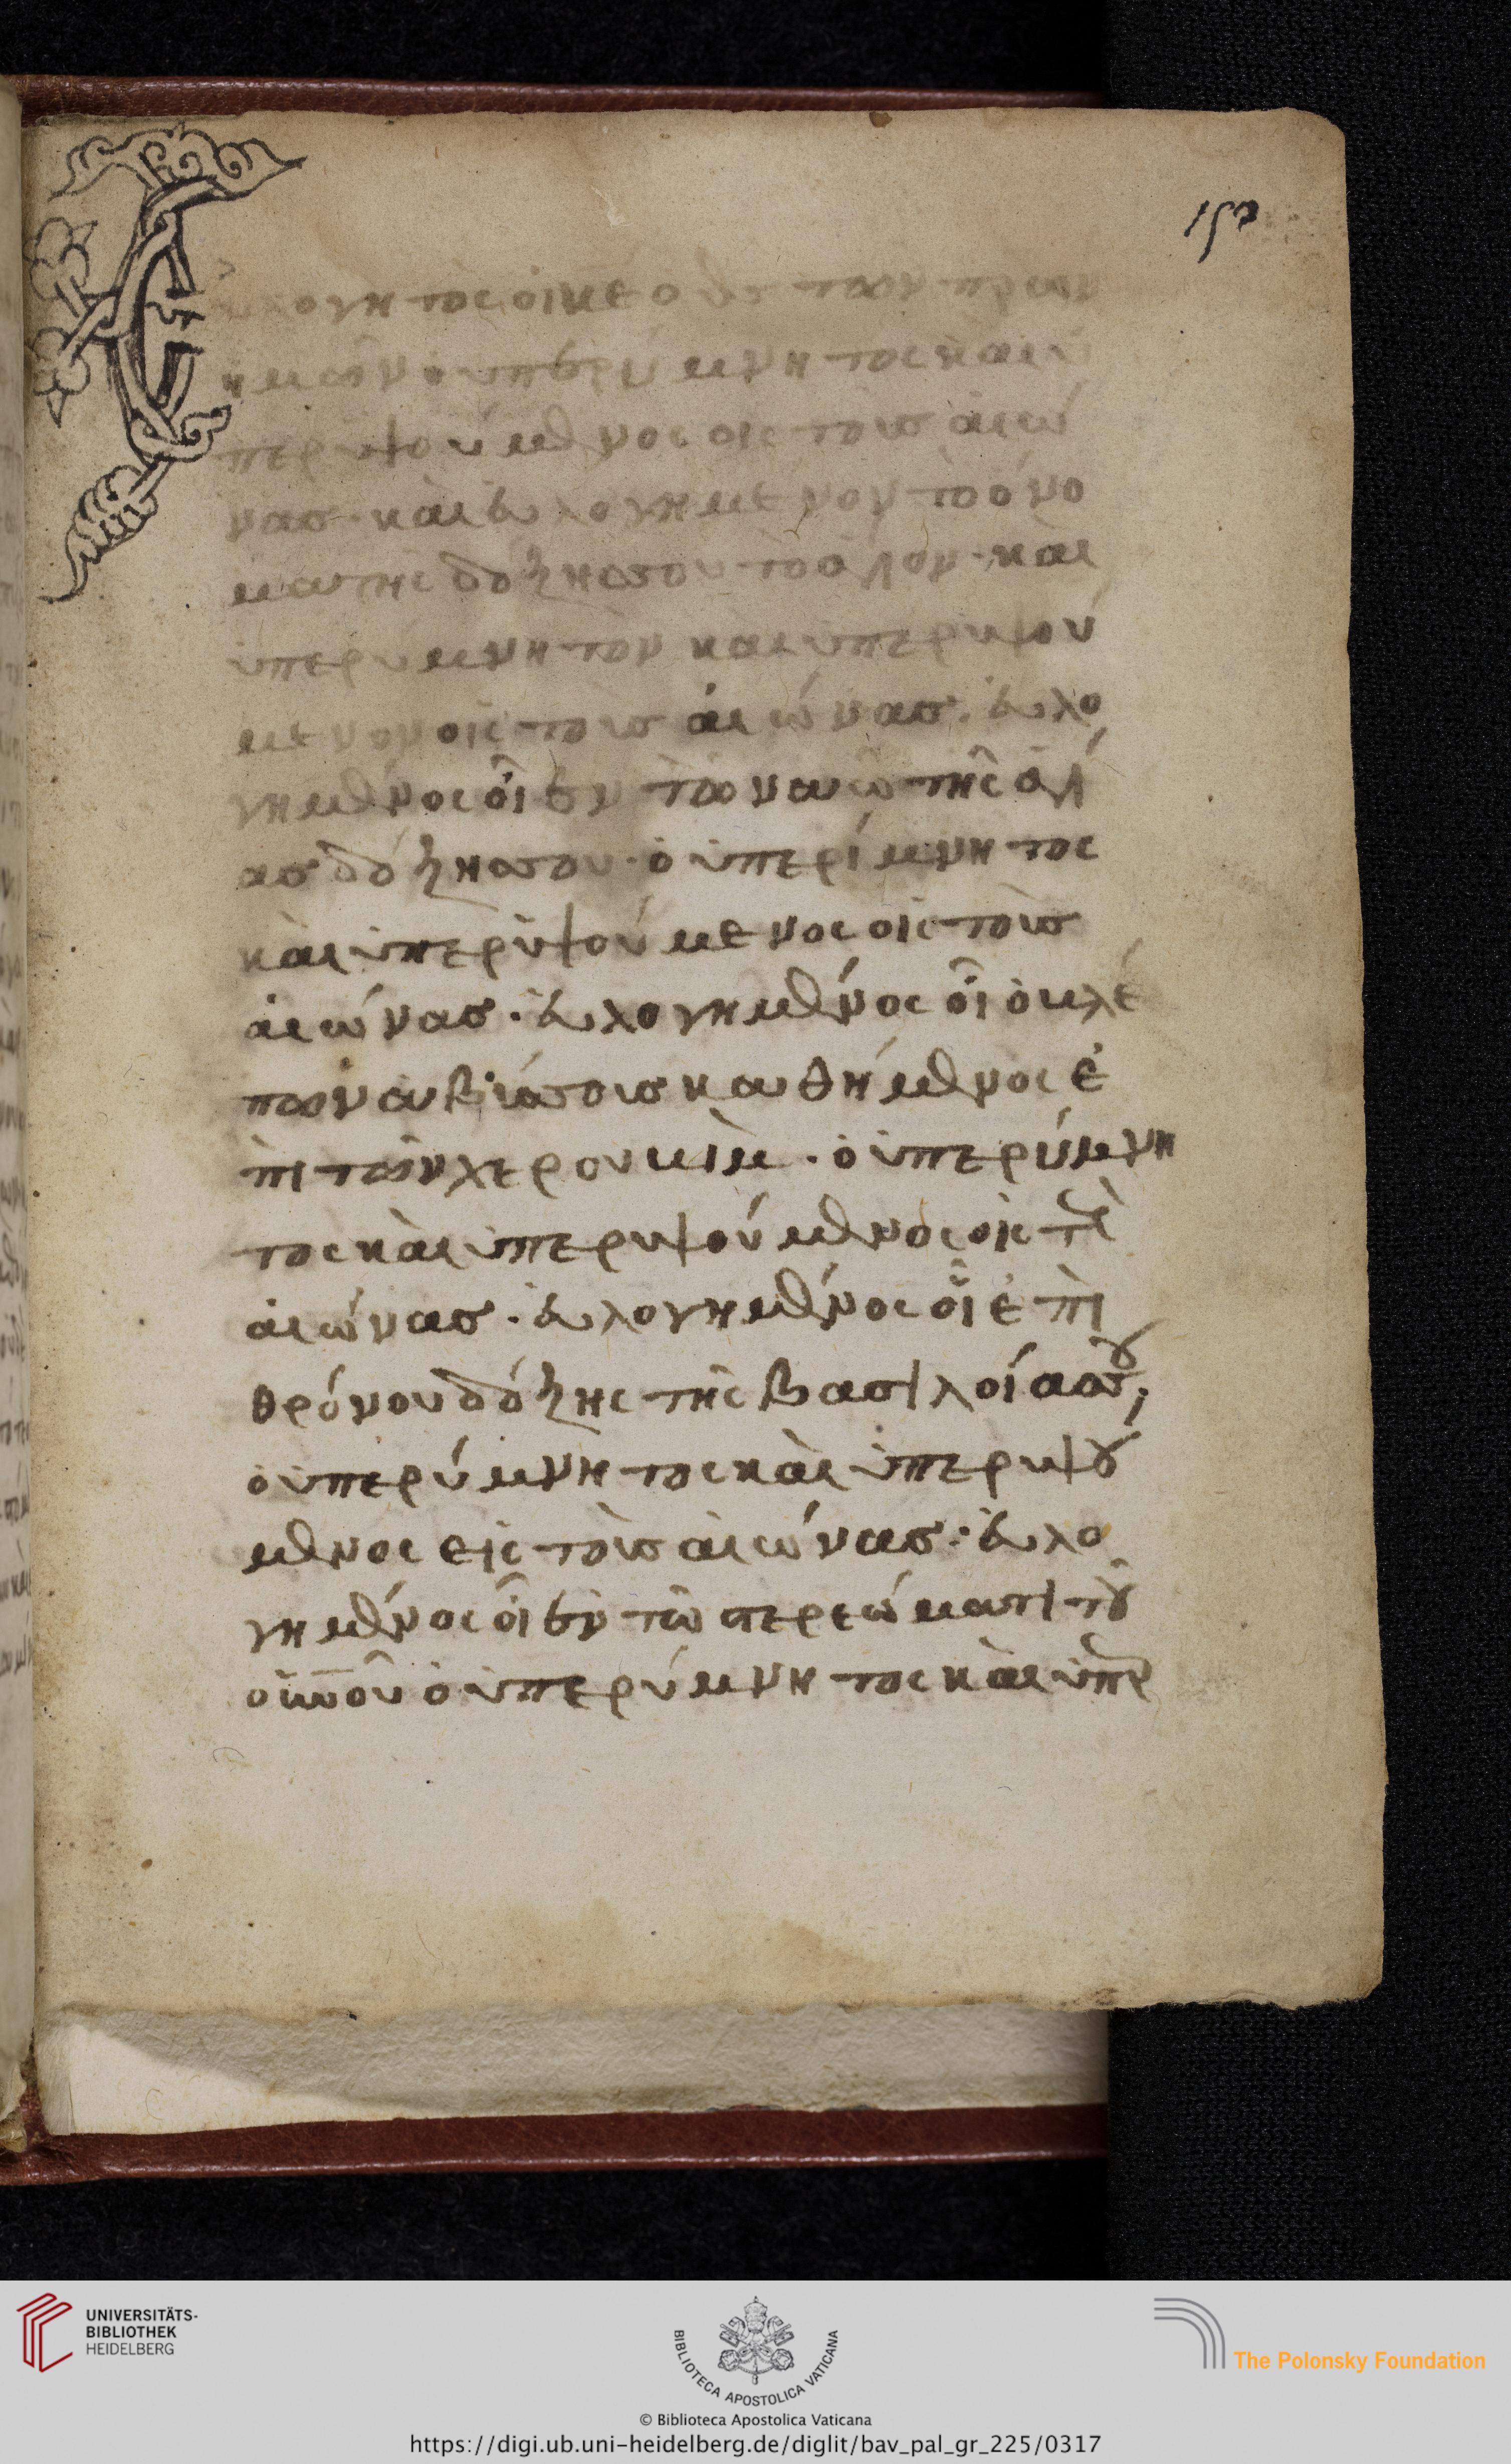 152
λογητὸς εἶ κε ὁ θς τῶν πρων
ἡμῶν ὁ ὑπερύμνητος καὶ ὑ
περυψούμενος εἰς τοὺς αἰῶ
νας· καὶ εὐλογημένον τὸ ὄνο
μα τῆς δόξης σου τὸ ἅγιον· καὶ
ὑπερυμνητὸν καὶ ὑπερυψού
μενον εἰς τοὺς αἰώνας. εὐλο
γημένος εἶ ἐν τῶ ναῶ τῆς ἁγί
ας δόξης σου· ὁ ὑπερύμνητος
καὶ ὑπερυψούμενος εἰς τοὺς
αἰώνας· εὐλογημένος εἶ ὁ βλέ
πων ἀβύσσους καθήμενος ἐ
πὶ τῶν χερουβίμ· ὁ ὑπερύμνη
τος καὶ ὑπερυψούμενος εἰς τοὺς
αἰώνας· εὐλογημένος εἶ ἐπὶ
θρόνου δόξης τῆς βασιλείας σου,
ὁ ὑπερύμνητος καὶ ὑπερυψού
μενος εἰς τοὺς αἰώνας· εὐλο
γημένος εἶ ἐν τῶ στερεώματι τοῦ
οὐνοῦ ὁ ὑπερύμνητος καὶ ὑπερ
UNIVERSITÄTS-
BIBLIOTHEK
HEIDELBERG
BIBLIOTECA APOSTOLICA VATICANA
The Polonsky Foundation
© Biblioteca Apostolica Vaticana
https://digi.ub.uni-heidelberg.de/diglit/bav_pal_gr_225/0317